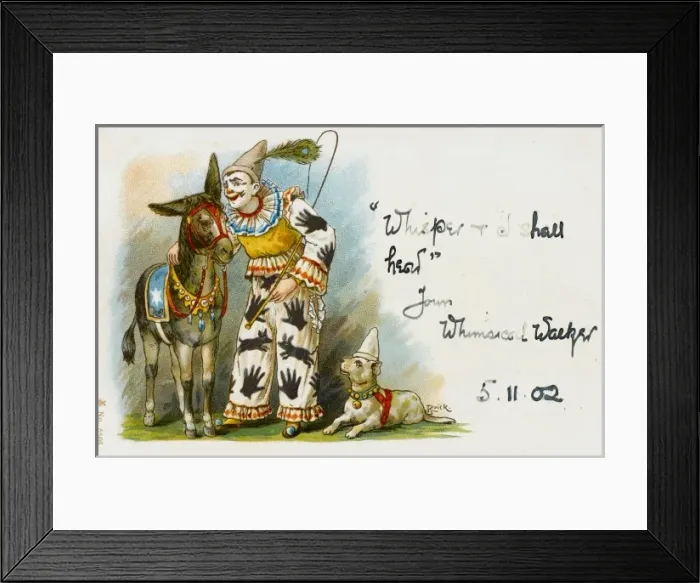 "Whisper + I shall
hear"
Yours
Whimsical Walker
5.11.02